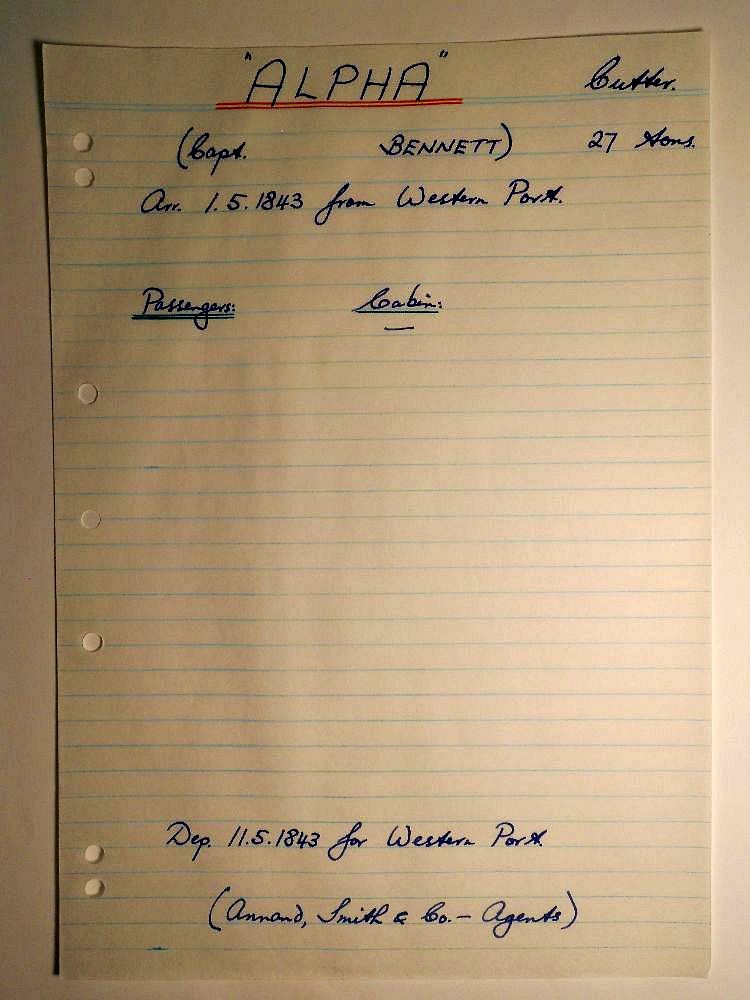 "ALPHA" Cutter.
(Capt. BENNETT) 27 tons.
Arr. 1.5.1843 from Western Port.
Passengers: Cabin:
—
Dep. 11.5.1843 for Western Port.
(Annand, Smith & Co. – Agents)